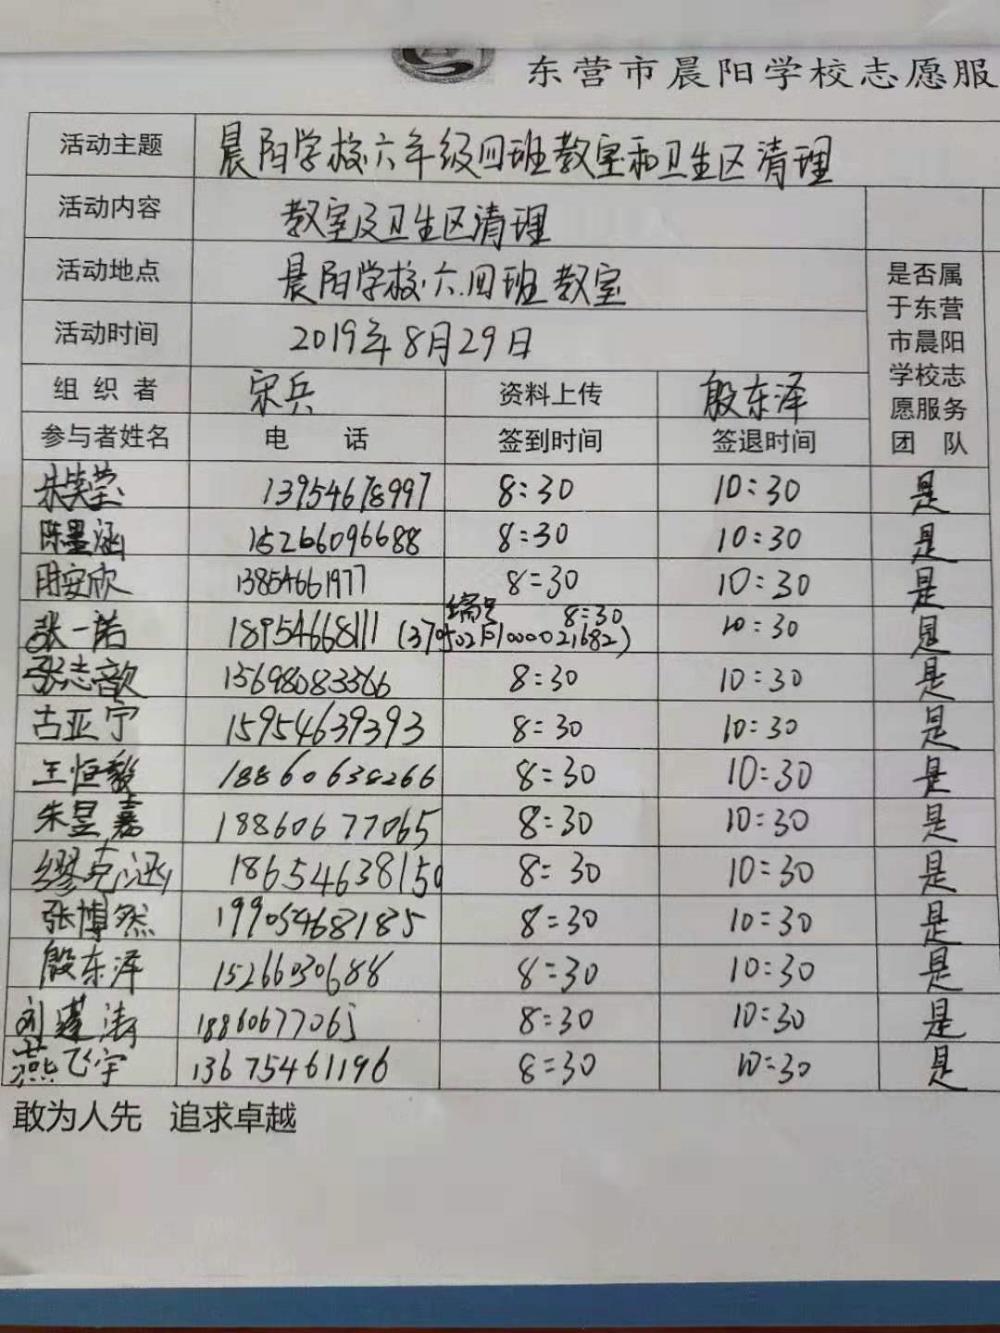 东营市晨阳学校志愿服
活动主题 晨阳学校六年级四班教室和卫生区清理
活动内容 教室及卫生区清理
活动地点 晨阳学校六.四班教室
活动时间 2019年8月29日
是否属于东营市晨阳学校志愿服务团队
组织者 宋兵 资料上传 殷东泽
参与者姓名 电话 签到时间 签退时间
朱笑莹 13954678997 8:30 10:30 是
陈墨涵 15266096688 8:30 10:30 是
13854661977 8:30 10:30 是
编号
张一诺 18954668111 (370502F1000021682) 8:30 10:30 是
张志歆 15698083366 8:30 10:30 是
古亚宁 15954639393 8:30 10:30 是
王恒毅 8:30 10:30 是
朱昱嘉 18860677065 8:30 10:30 是
缪克涵 18654638150 8:30 10:30 是
张博然 19905468185 8:30 10:30 是
殷东泽 15266030688 8:30 10:30 是
刘莲涛 18860677065 8:30 10:30 是
燕飞宇 13675461196 8:30 10:30 是
敢为人先 追求卓越